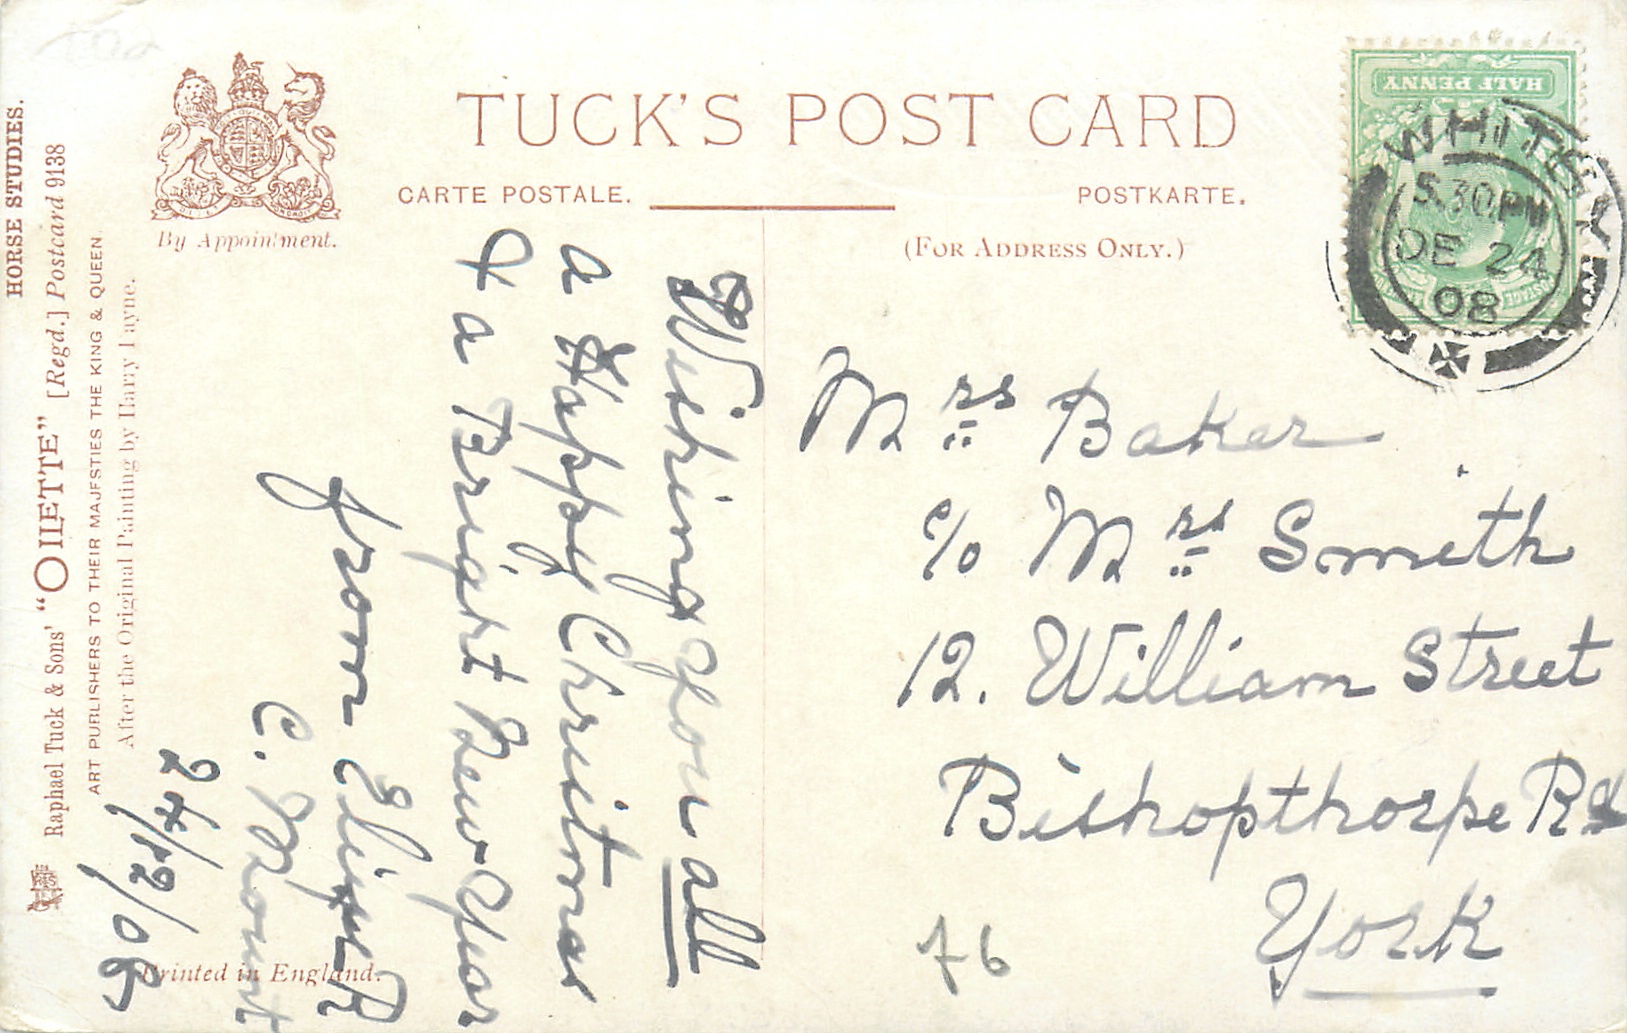 TUCK'S POST CARD
CARTE POSTALE.
POSTKARTE.
(FOR ADDRESS ONLY.)
By Appointment.
HORSE STUDIES.
Raphael Tuck & Sons' "OILETTE" [Regd.] Postcard 9138
ART PUBLISHERS TO THEIR MAJESTIES THE KING & QUEEN.
After the Original Painting by Harry Payne.
Printed in England.
HALF PENNY
POSTAGE
WHITBY
5.30PM
DE 24
08
Wishing You all
a Happy Christmas
& a Bright New Year
from
C. Mount
24/12/08
Mrs Baker
c/o Mrs Smith
12. William Street
Bishopthorpe Rd
York
76